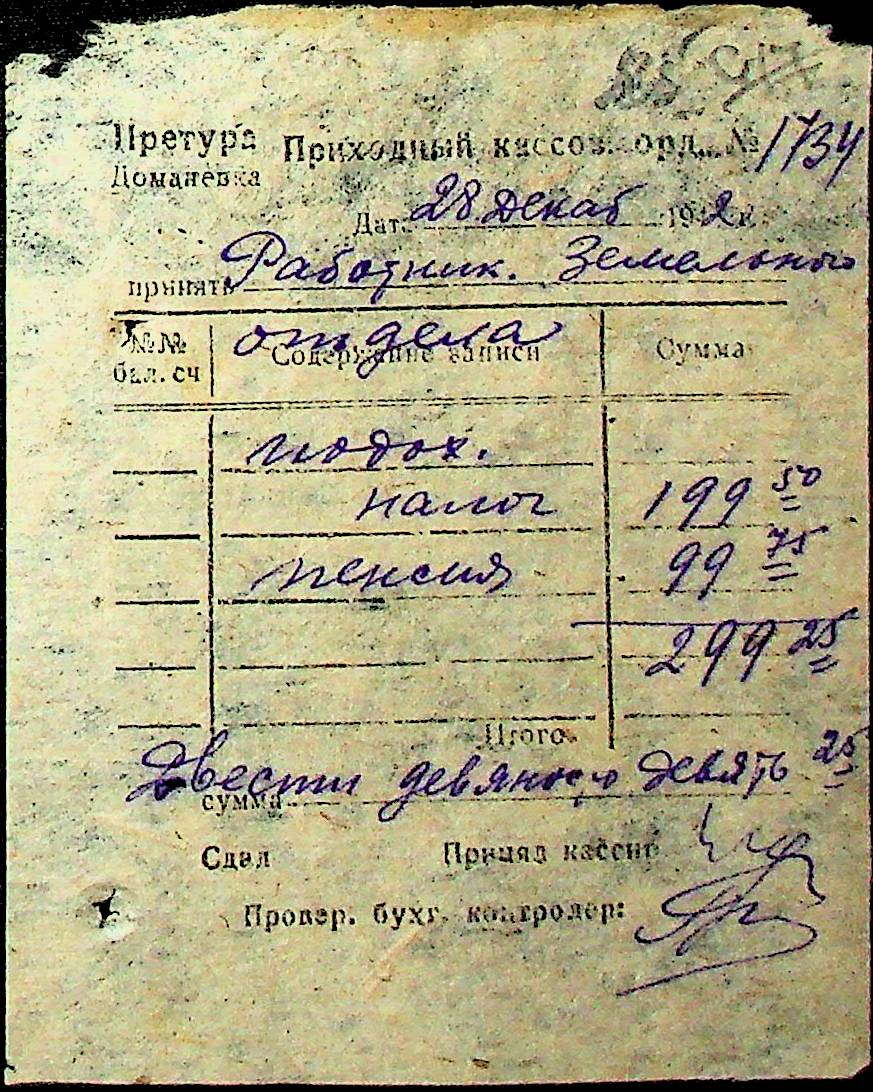 Претура Приходный кассов. орд. № 1734
Доманевка
Дат. 28 Декаб 1942 г.
принять Работник. Земельного
отдела
№№ бал. сч Содержание записи Сумма
подох.
налог 199 50
пенсия 99 75
299 25
Итого
сумма Двести девяносто девять 25
Сдал Принял кассир
Провер. бухг. контролер: